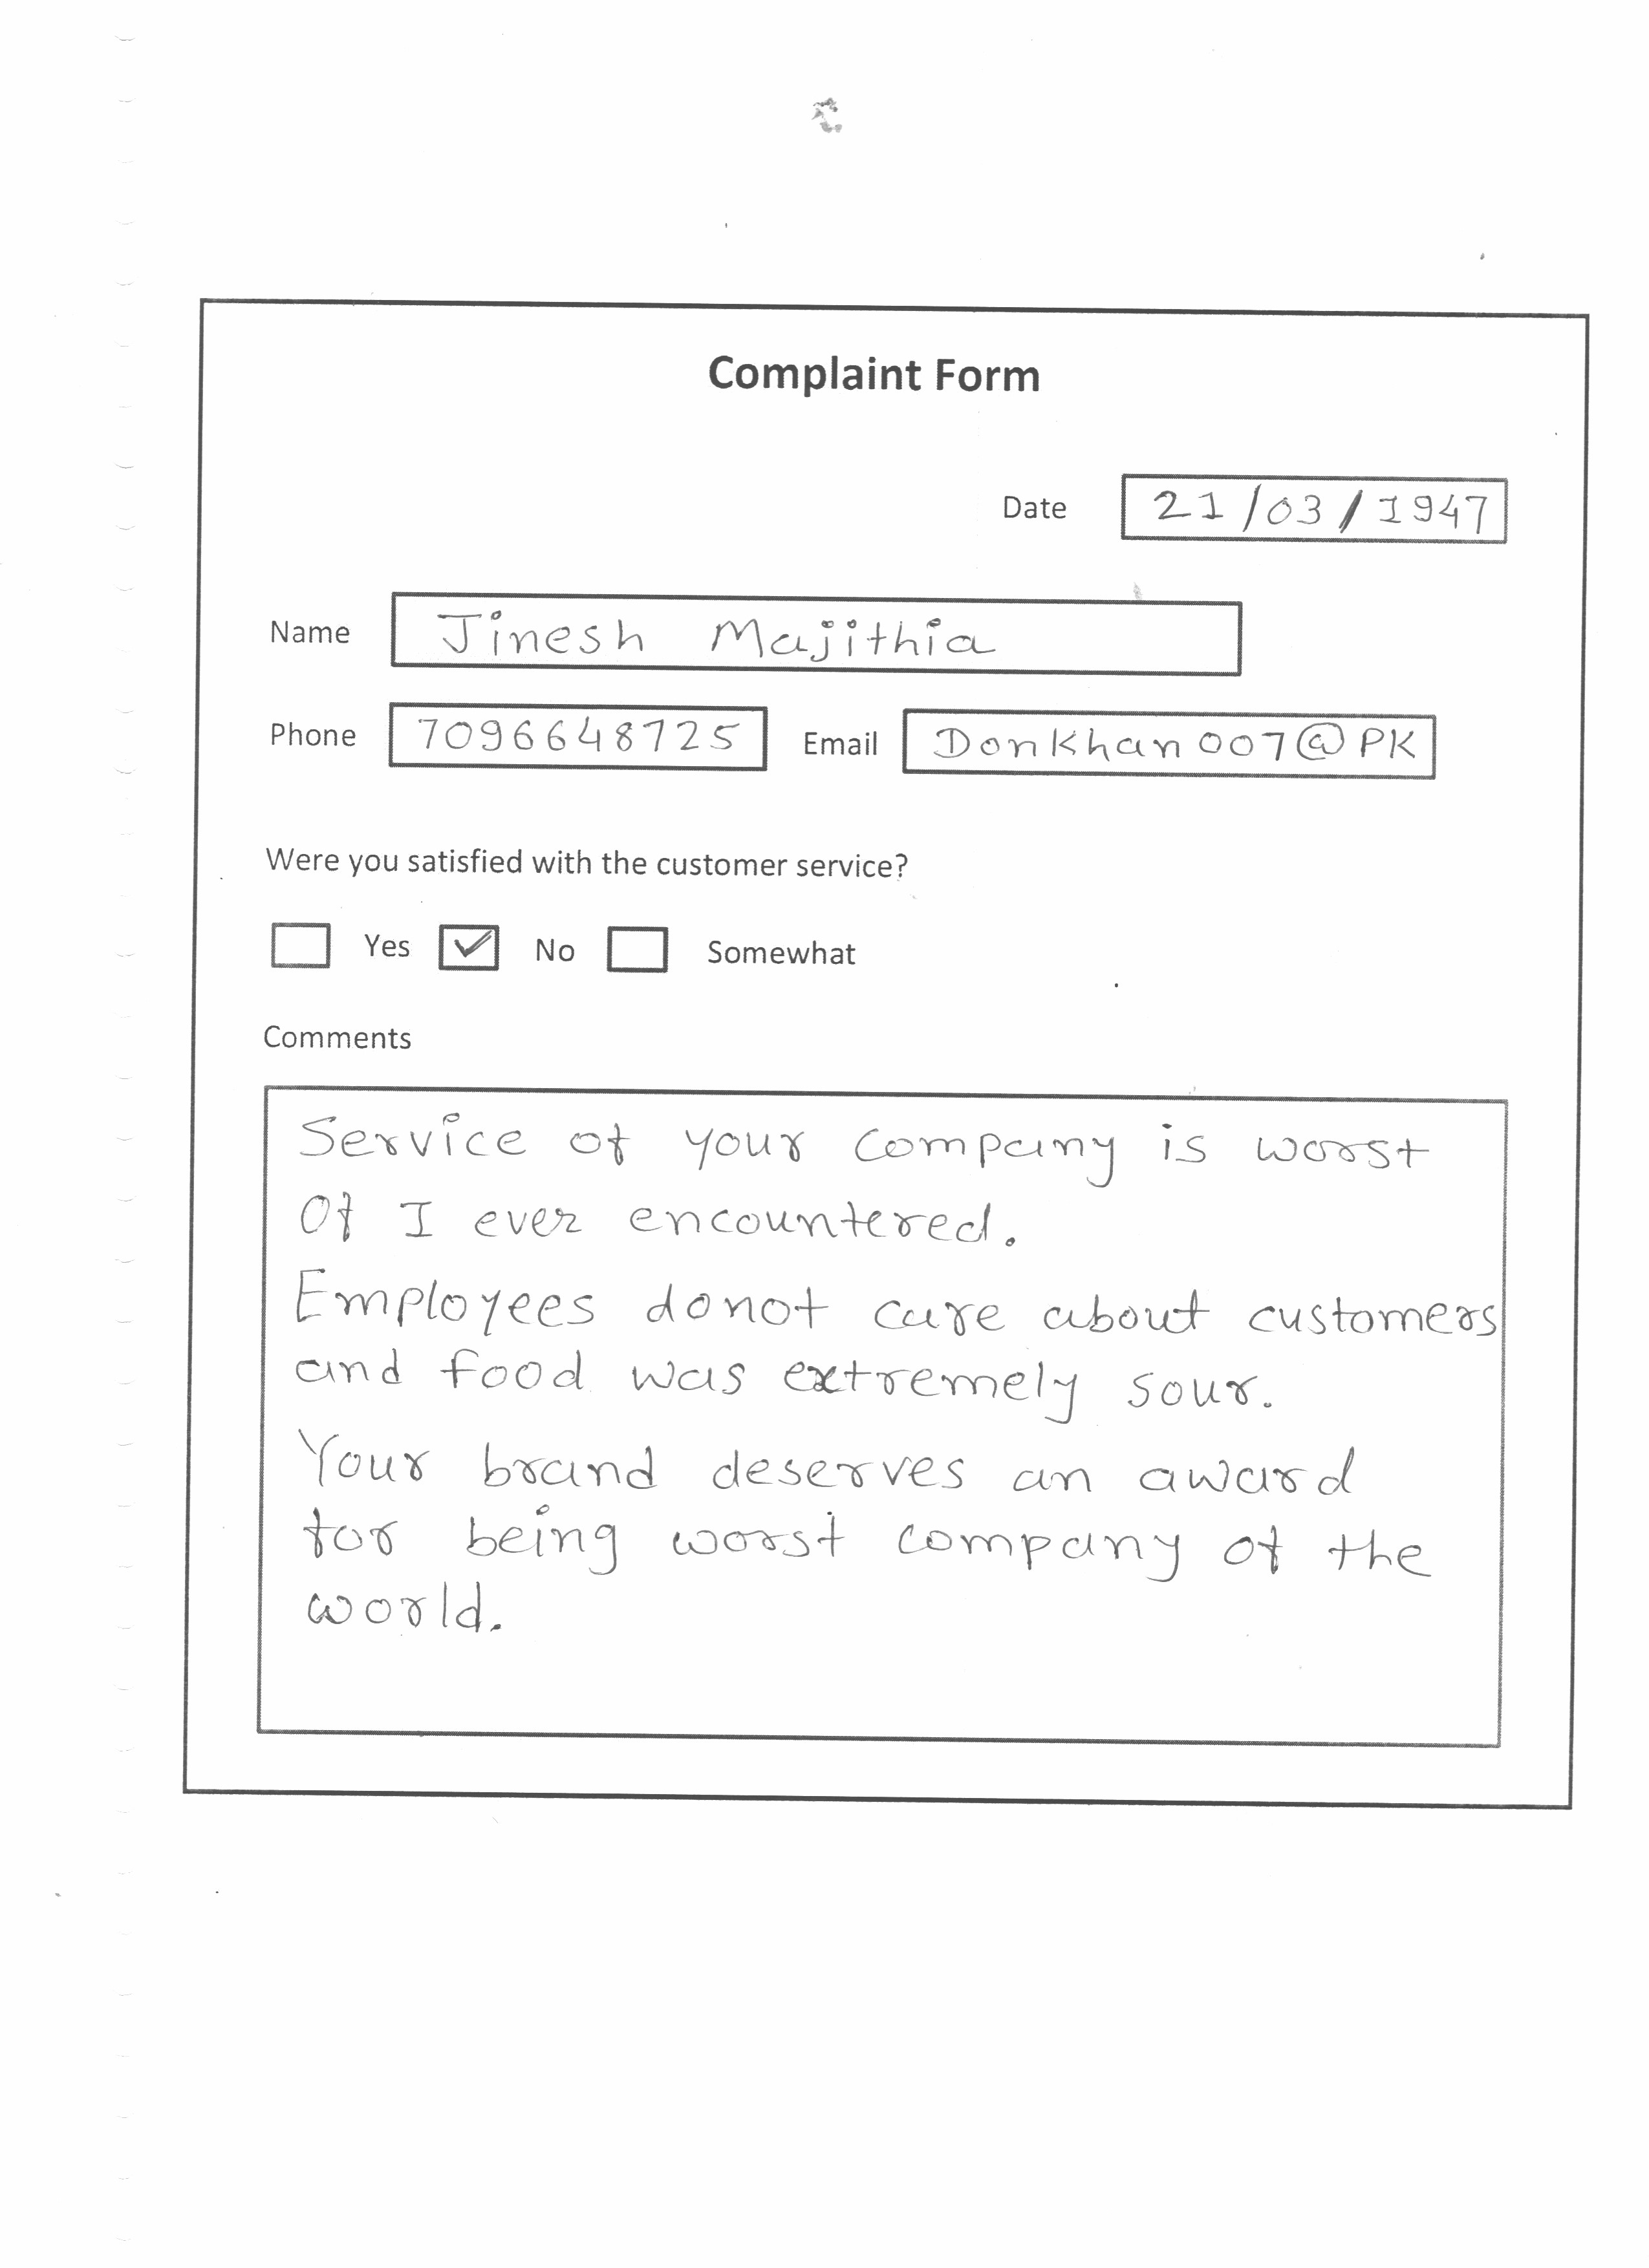 Complaint Form
Date 21/03/1947
Name Jinesh Majithia
Phone 7096648725 Email DonKhan007@PK
Were you satisfied with the customer service?
Yes ✓ No Somewhat
Comments
Service of your company is worst
Of I ever encountered.
Employees donot care about customers
and food was extremely sour.
Your brand deserves an award
for being worst company of the
world.